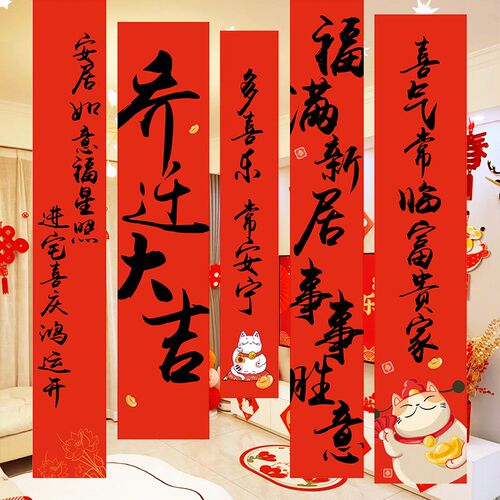 安居如意福星照
进宅喜庆鸿运开
乔迁大吉
多喜乐 常安宁
福满新居事事胜意
喜气常临富贵家
春